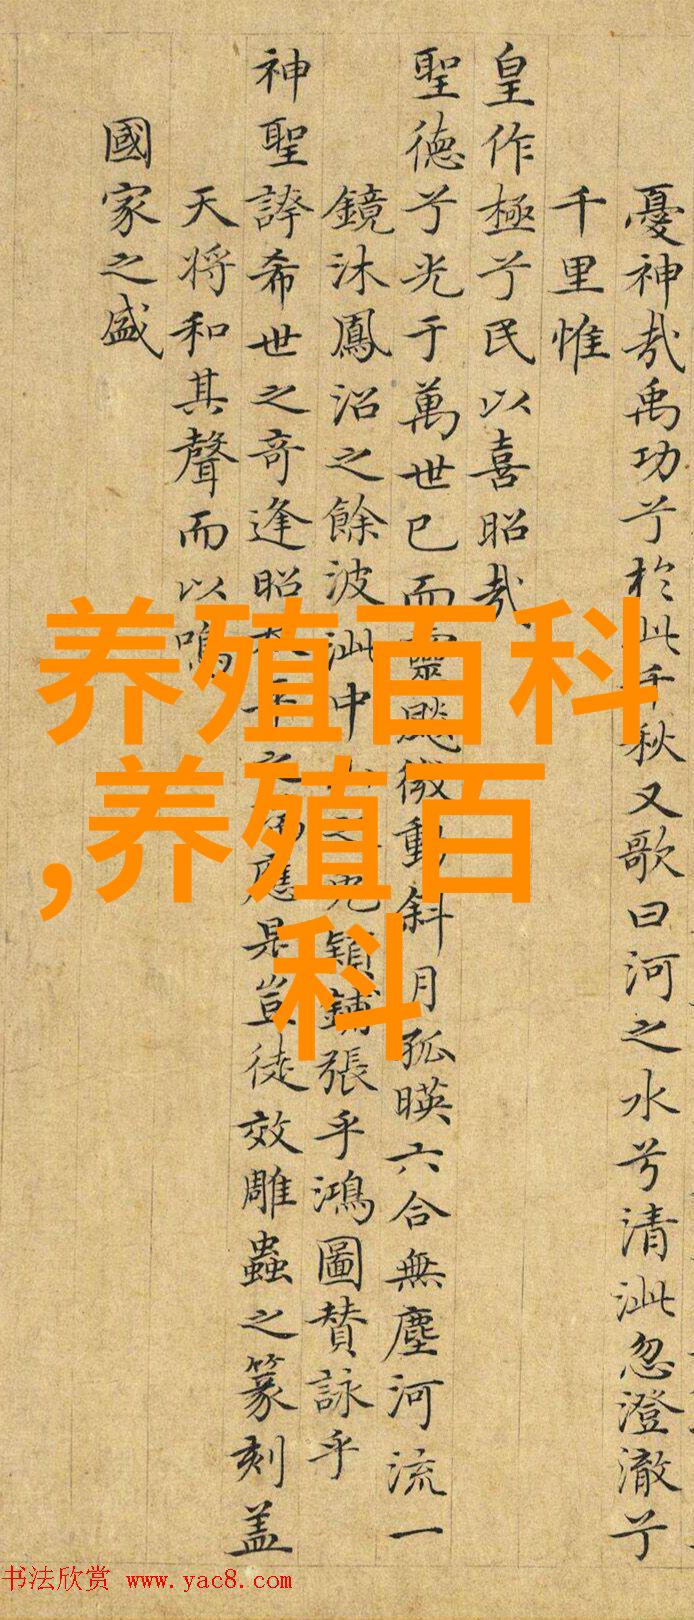 憂神哉禹功兮於此千秋又歌曰河之水兮清泚忽澄澈兮
千里惟
皇作極兮民以喜昭哉
聖德兮光于萬世已而靈飈微動斜月孤暎六合無塵河流一
鏡沐鳳沼之餘波泚中之兎穎鋪張乎鴻圖賛詠乎
神聖誇希世之奇逢昭之應是豈徒效雕蟲之篆刻盖
天将和其聲而以鳴
國家之盛
养殖百科
,养殖百
科
书法欣赏 www.yac8.com